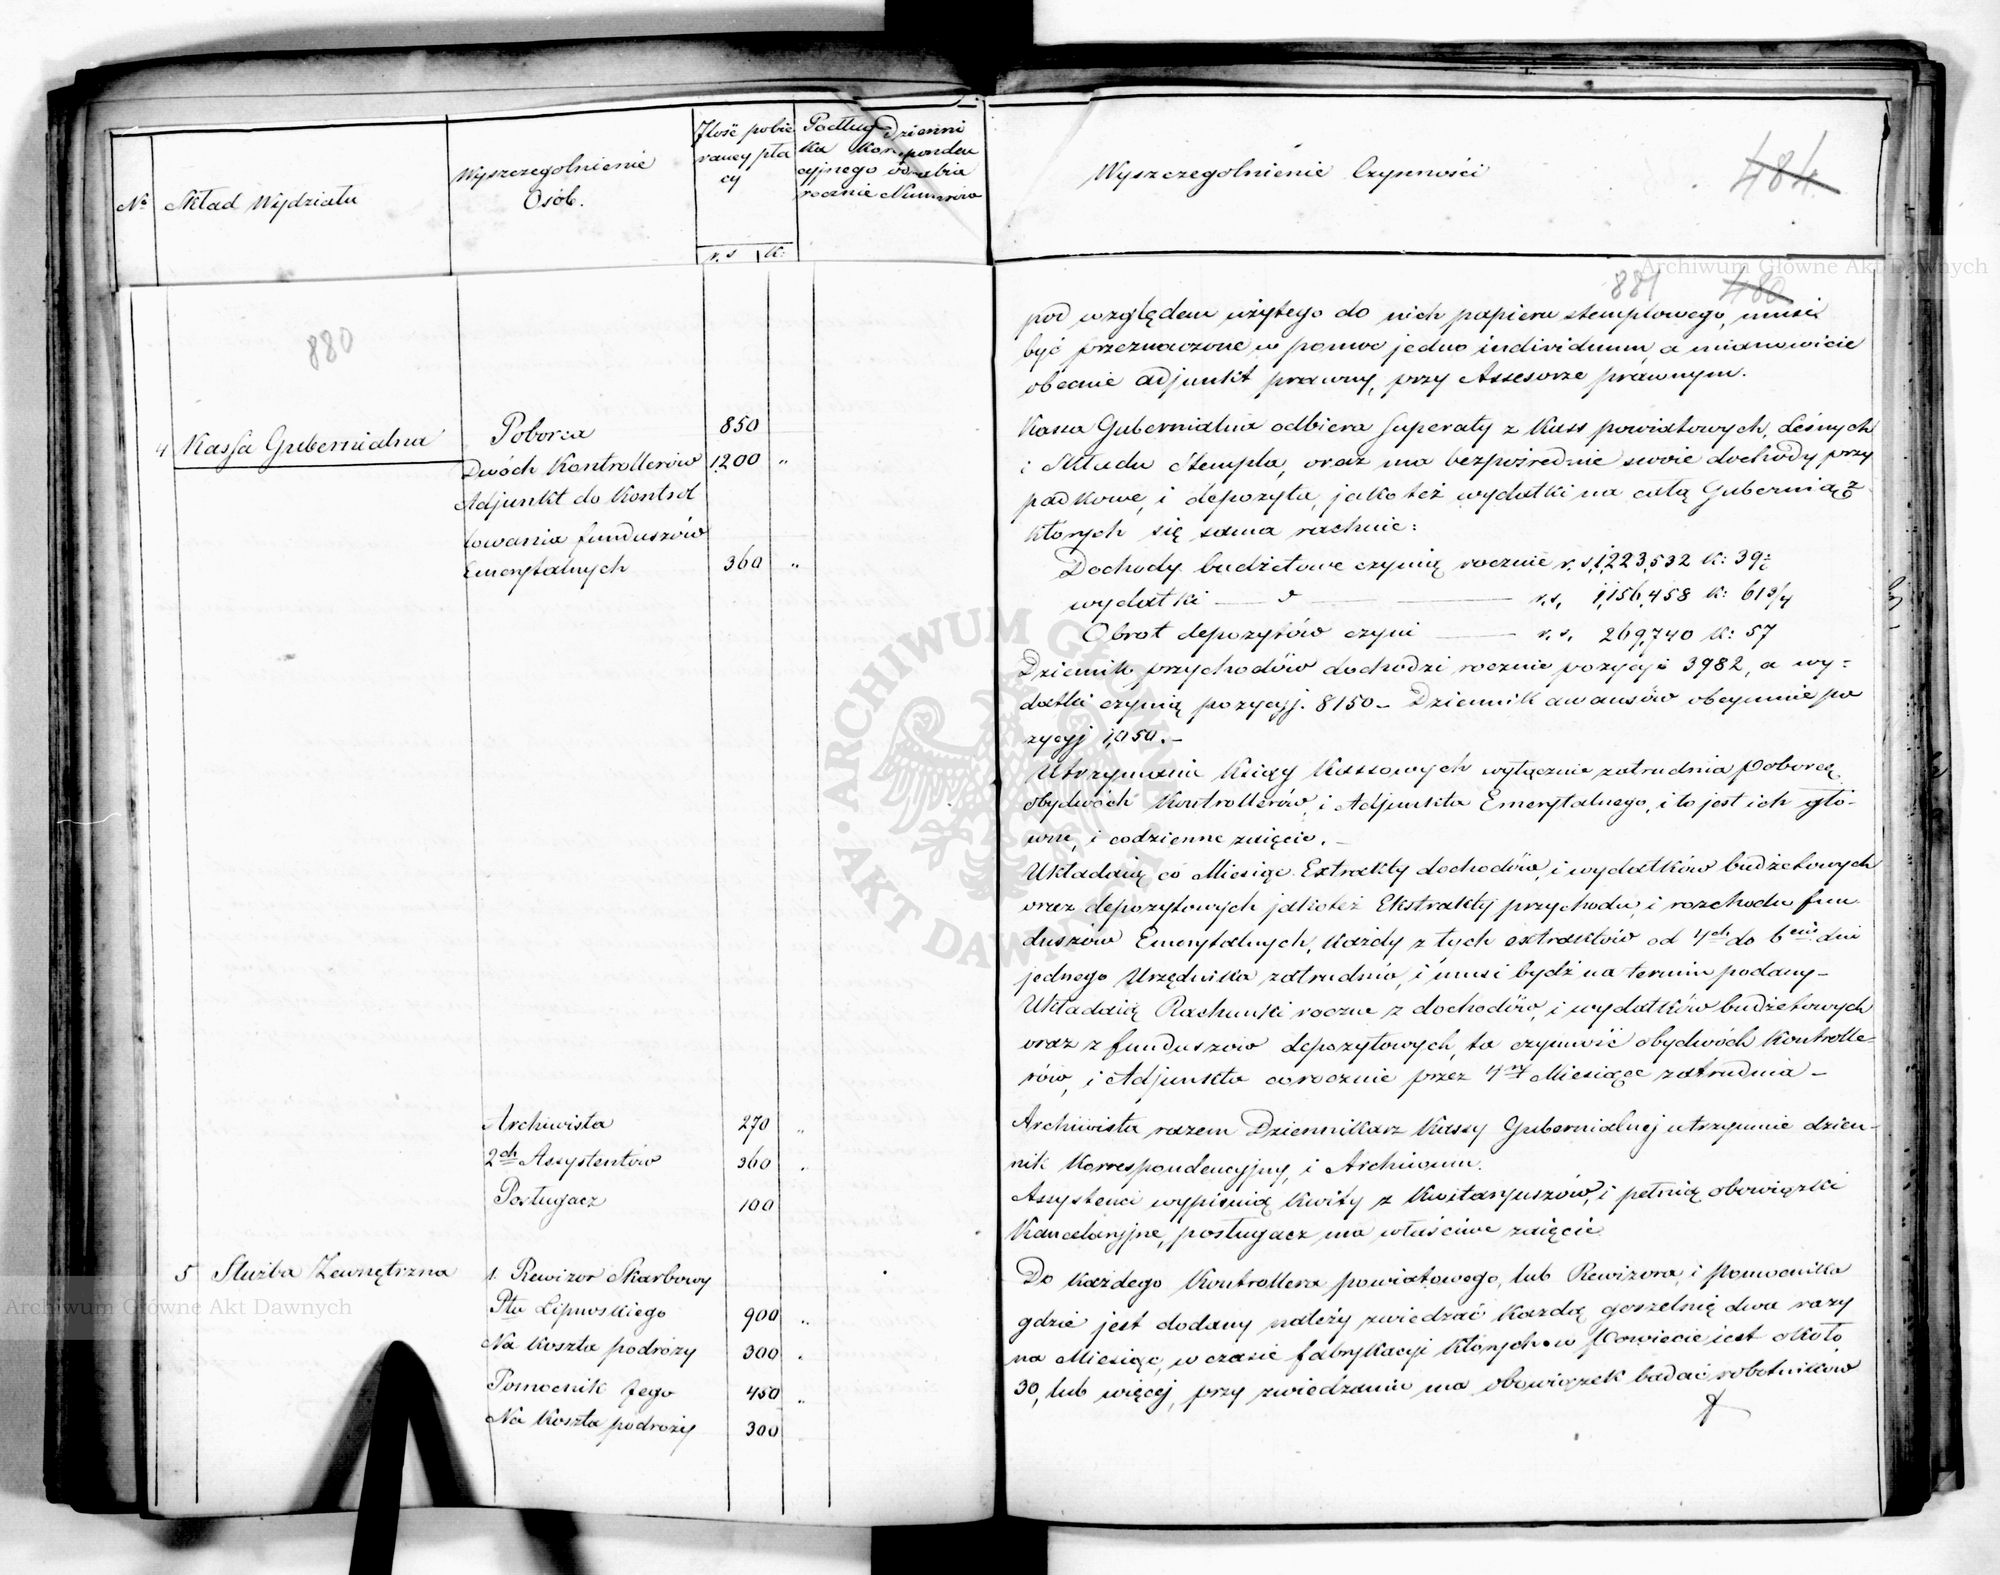 No
Skład Wydziału
Wyszczegolnienie
Osób.
Ilość pobie
raney pła
cy
r. s k:
Podług Dzienni
ka Korrespondeu
cyjnego wyrabia
rocznie Numerow
880
4 Kassa Gubernialna
Poborca 850
Dwóch Kontrollerów 1200 "
Adjunkt do Kontrol
lowania funduszów
Emerytalnych 360 "
Archiwista 270 "
2ch Assystentów 360 "
Posługacz 100
5 Służba Zewnętrzna
1. Rewizor Skarbowy
Ptu Lipnoskiego 900 "
Na koszta podroży 300 "
Pomocnik Jego 450 "
Na koszta podroży 300
Wyszczegolnienie Czynności
484
881 480
pod względem użytego do nich papieru stemplowego, musi
być przeznaczone w pomoc jedno individuum, a mianowicie
obecnie adjunkt prawny, przy Assesorze prawnym.
Kassa Gubernialna odbiera Superaty z Kass powiatowych, Leśnych
i Składu Stempla, oraz ma bezpośrednie swoie dochody przy
padkowe, i depozyta, jako też wydatki na całą Gubernią z
których się sama rachuie:
Dochody budżetowe czynią rocznie r. s. 1,223,532 k: 39
wydatki — d — r. s. 1,156,458 k: 61 3/4
Obrot depozytów czyni — r. s. 269,740 k: 57
Dziennik przychodów dochodzi rocznie pozycyi 3982, a wy=
datki czynią pozycyj. 8150 - Dziennik awansów obeymuie po
zycyj 1,050. -
Utrzymanie Ksiąg Kassowych wyłącznie zatrudnia Poborcę
obydwóch Kontrollerów, i Adjunkta Emerytalnego, i to jest ich głó-
wne, i codzienne zaięcie. -
Układaią co Miesiąc Extrakty dochodów, i wydatków budżetowych
oraz depozytowych jakoteż Ekstrakty przychodu, i rozchodu fun
duszów Emerytalnych, każdy z tych extraktów od 4ch do 6ciu dni
jednego Urzędnika zatrudnia, i musi bydź na termin podany -
Układaią Rachunki roczne z dochodów, i wydatków budżetowych
oraz z funduszów depozytowych, ta czynność obydwóch Kontrolle-
rów, i Adjunkta corocznie przez 4ry Miesiące zatrudnia -
Archiwista razem Dziennikarz Kassy Gubernialnej utrzymuie dzien-
nik Korrespondencyjny, i Archiwum.
Assystenci wypisuią kwity z Kwitaryuszów, i pełnią obowiązki
Kancelaryjne, posługacz ma właściwe zaięcie
Do każdego Kontrollera powiatowego, lub Rewizora, i pomocnika
gdzie jest dodany należy zwiedzać każdą gorzelnię dwa razy
na Miesiąc, w czasie fabrykacyi których w Powiecie iest około
30, lub więcej, przy zwiedzaniu ma obowiązek badać robotników
Archiwum Główne Akt Dawnych
Archiwum Główne Akt Dawnych
ARCHIWUM GŁÓWNE AKT DAWNYCH